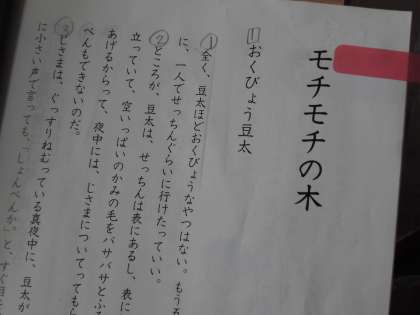 モチモチの木
1 おくびょう豆太
① 全く、豆太ほどおくびょうなやつはない。もうう
に、一人でせっちんぐらいに行けたっていい。
② ところが、豆太は、せっちんは表にあるし、表に
立っていて、空いっぱいのかみの毛をバサバサとふ
あげるからって、夜中には、じさまについてってもら
べんもできないのだ。
③ じさまは、ぐっすりねむっている真夜中に、豆太が
に小さい声で言っても、「しょんべんか。」と、すぐ目